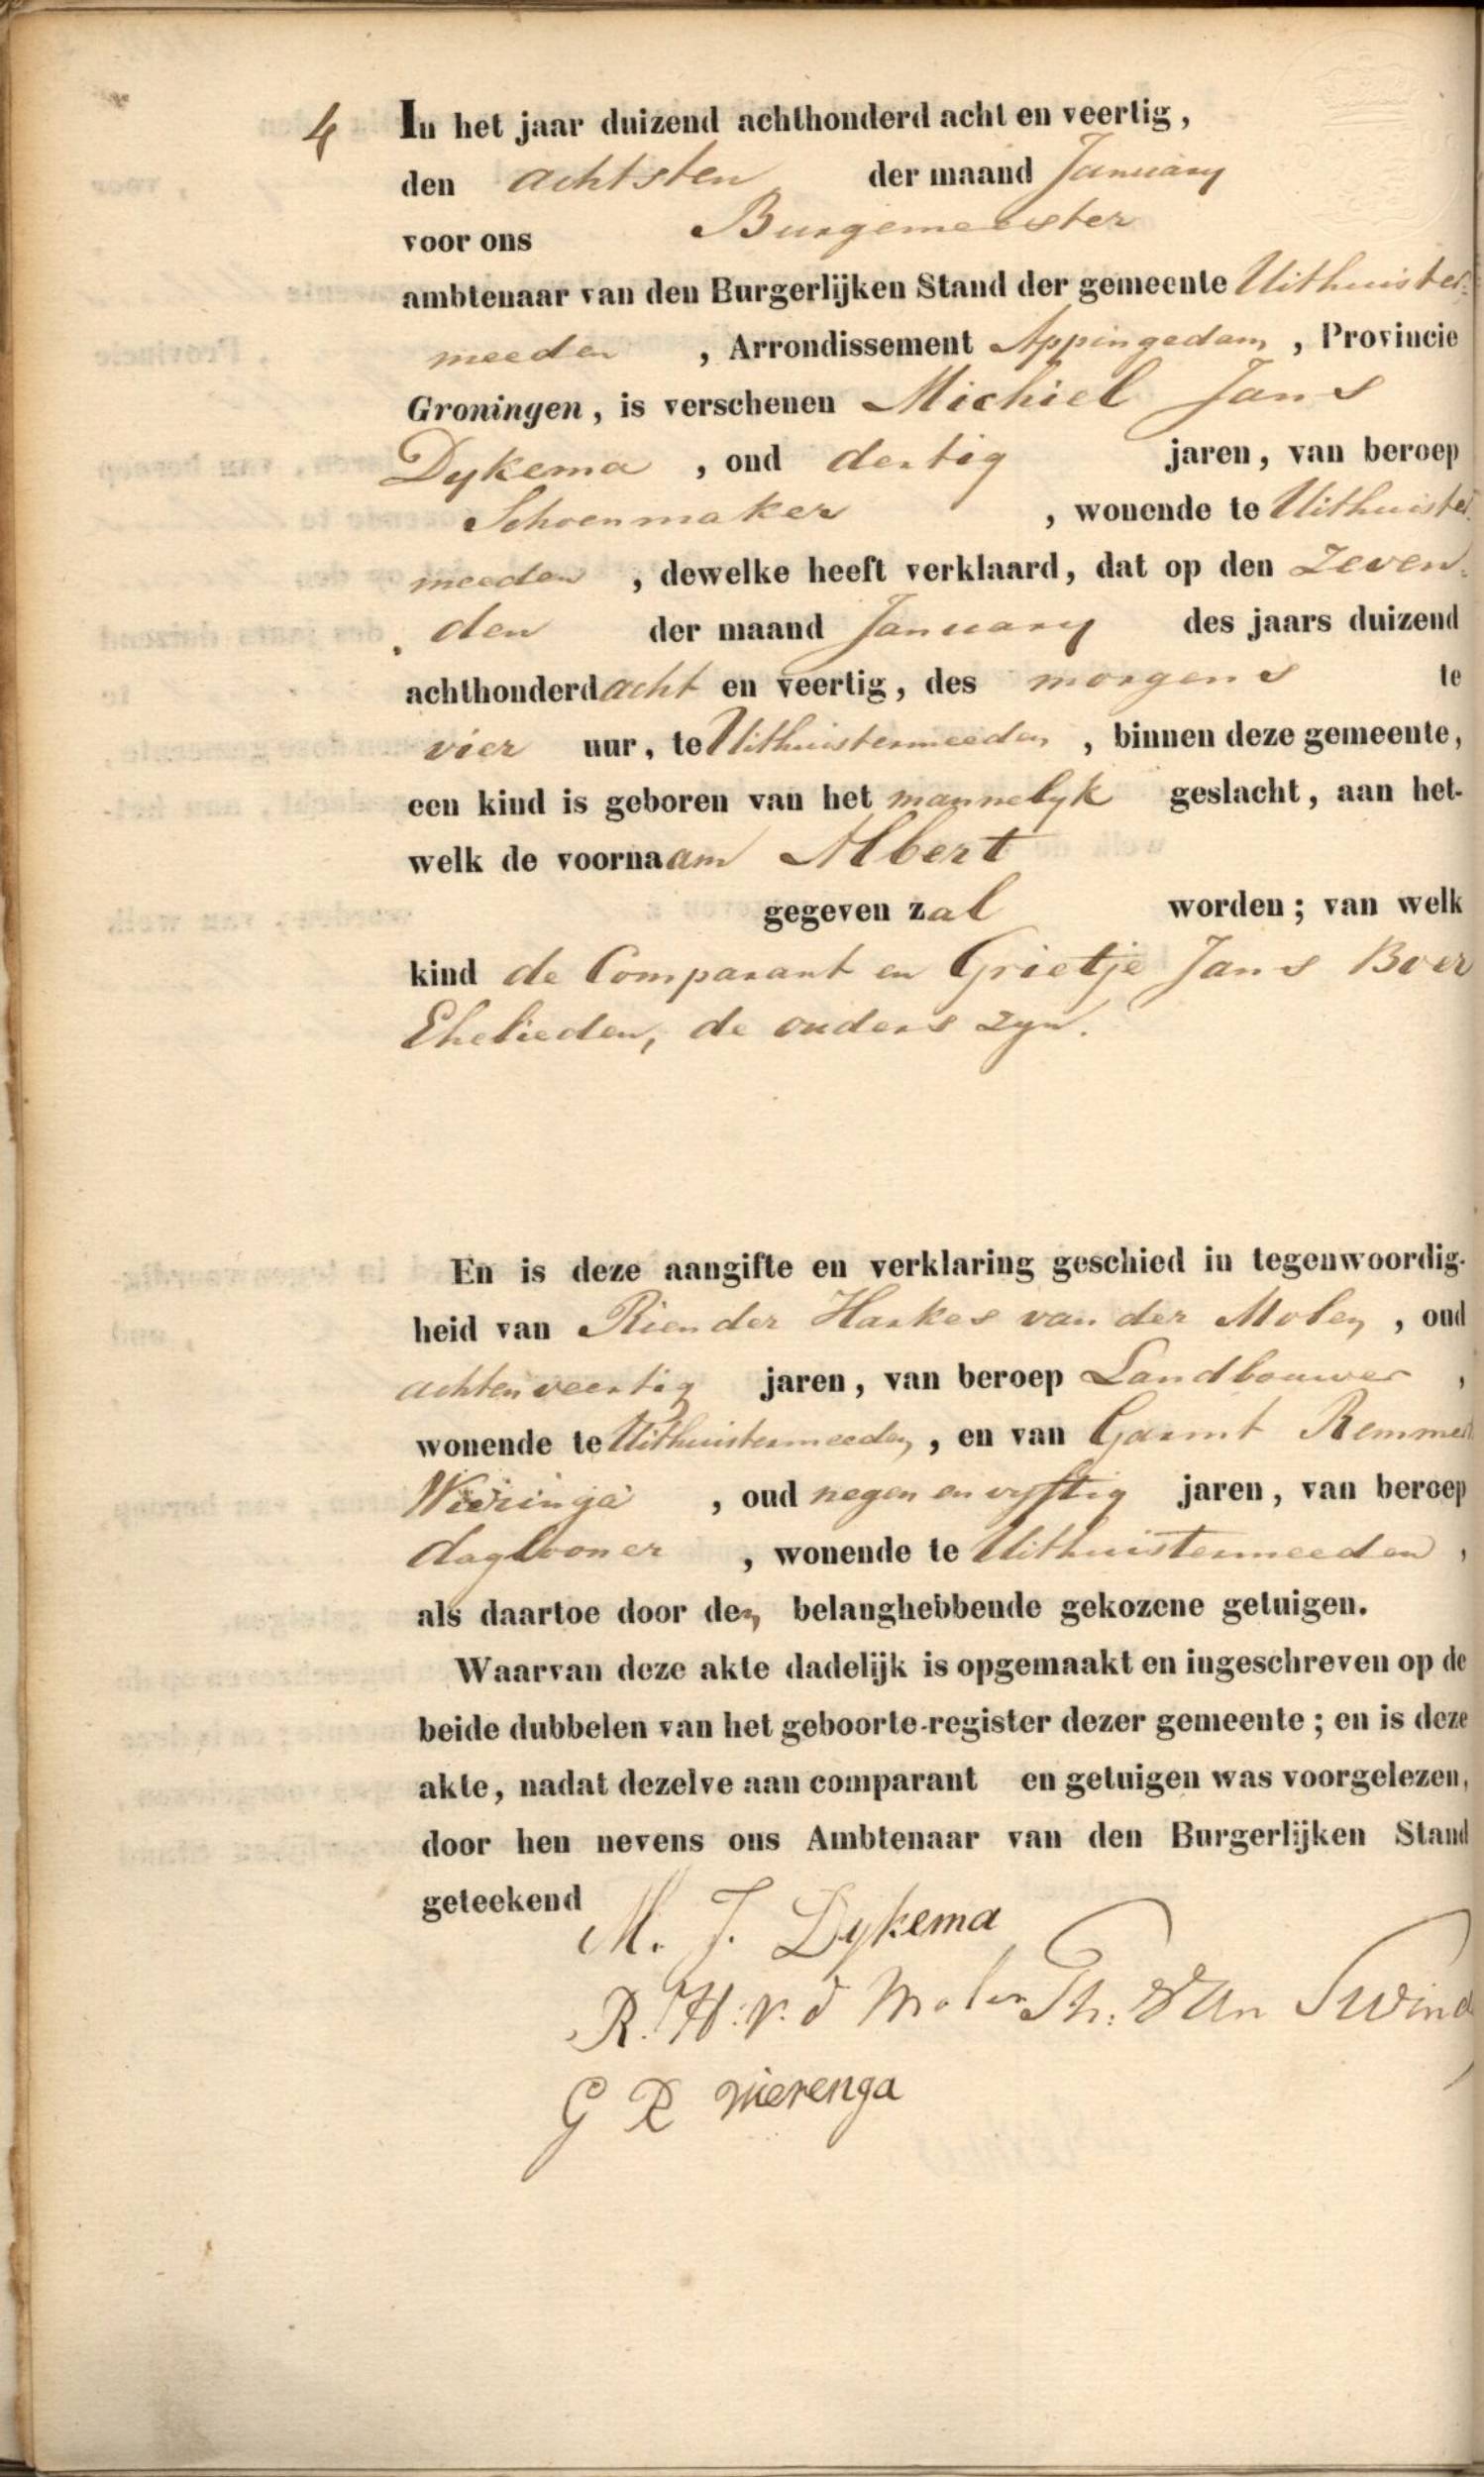 4 In het jaar duizend achthonderd acht en veertig,
den achtsten der maand January
voor ons Burgemeester
ambtenaar van den Burgerlijken Stand der gemeente Uithuister-
meeden, Arrondissement Appingedam, Provincie
Groningen, is verschenen Michiel Jans
Dykema, oud dertig jaren, van beroep
Schoenmaker, wonende te Uithuister
meeden, dewelke heeft verklaard, dat op den zeven
den der maand January des jaars duizend
achthonderd acht en veertig, des morgens te
vier uur, te Uithuistermeeden, binnen deze gemeente,
een kind is geboren van het mannelyk geslacht, aan het-
welk de voornaam Albert
gegeven zal worden; van welk
kind de Comparant en Grietje Jans Boer
Ehelieden, de ouders zyn.
En is deze aangifte en verklaring geschied in tegenwoordig-
heid van Riender Harkes van der Molen, oud
achtenveertig jaren, van beroep Landbouwer,
wonende te Uithuistermeeden, en van Garmt Remmer
Wieringa, oud negen en vyftig jaren, van beroep
daglooner, wonende te Uithuistermeeden,
als daartoe door den belanghebbende gekozene getuigen.
Waarvan deze akte dadelijk is opgemaakt en ingeschreven op de
beide dubbelen van het geboorte-register dezer gemeente; en is deze
akte, nadat dezelve aan comparant en getuigen was voorgelezen,
door hen nevens ons Ambtenaar van den Burgerlijken Stand
geteekend
M. J. Dykema
R. H. v. d Molen Th. Van Swind
G R Wierenga